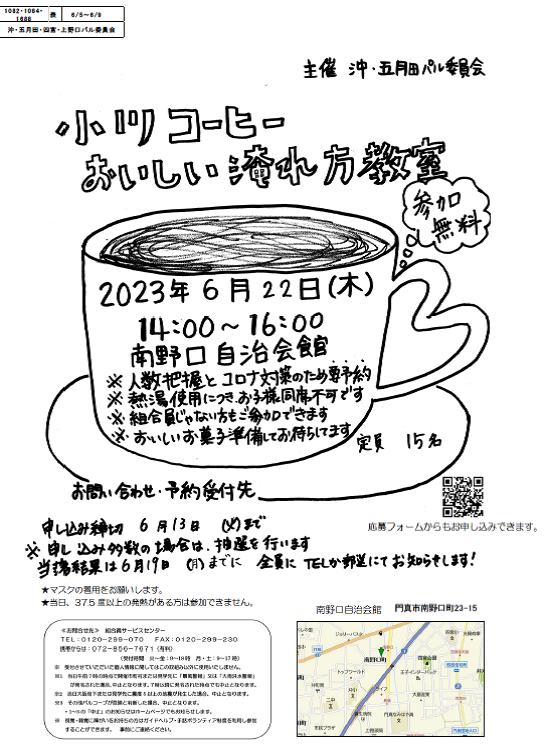 1082・1084・1688
長
6/5～6/9
沖・五月田・四宮・上野口パル委員会
主催 沖・五月田パル委員会
小川コーヒー
おいしい淹れ方教室
参加無料
2023年6月22日(木)
14:00～16:00
南野口自治会館
※人数把握とコロナ対策のため要予約
※熱湯使用につき、お子様同席不可です
※組合員じゃない方もご参加できます
※おいしいお菓子準備してお待ちしてます
定員 15名
お問い合わせ・予約受付先
応募フォームからもお申し込みできます。
申し込み締切 6月13日 (火)まで
※申し込み多数の場合は、抽選を行います
当選結果は6月19日 (月)までに 全員にTELか郵送にてお知らせします!
★マスクの着用をお願いします。
★当日、37.5度以上の発熱がある方は参加できません。
南野口自治会館 門真市南野口町23-15
≪お問合せ先≫ 組合員サービスセンター
TEL:0120-299-070 FAX:0120-299-230
携帯からは:072-856-7671(有料)
(受付時間 火～金:9～19時 月・土:9～17時)
※ 受付させていただいた個人情報に関してはこの取組み以外に使用いたしません。
南野口町